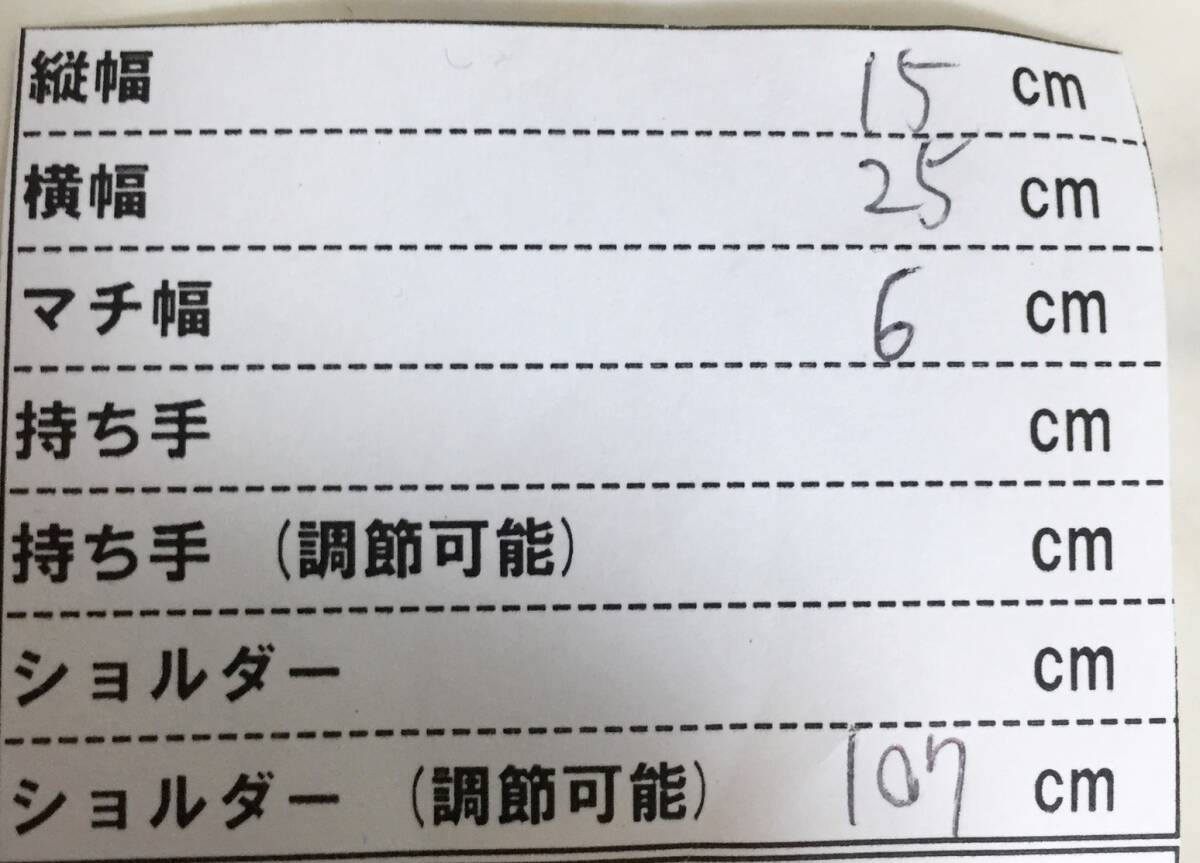 縦幅 15 cm
横幅 25 cm
マチ幅 6 cm
持ち手 cm
持ち手 (調節可能) cm
ショルダー cm
ショルダー (調節可能) 107 cm